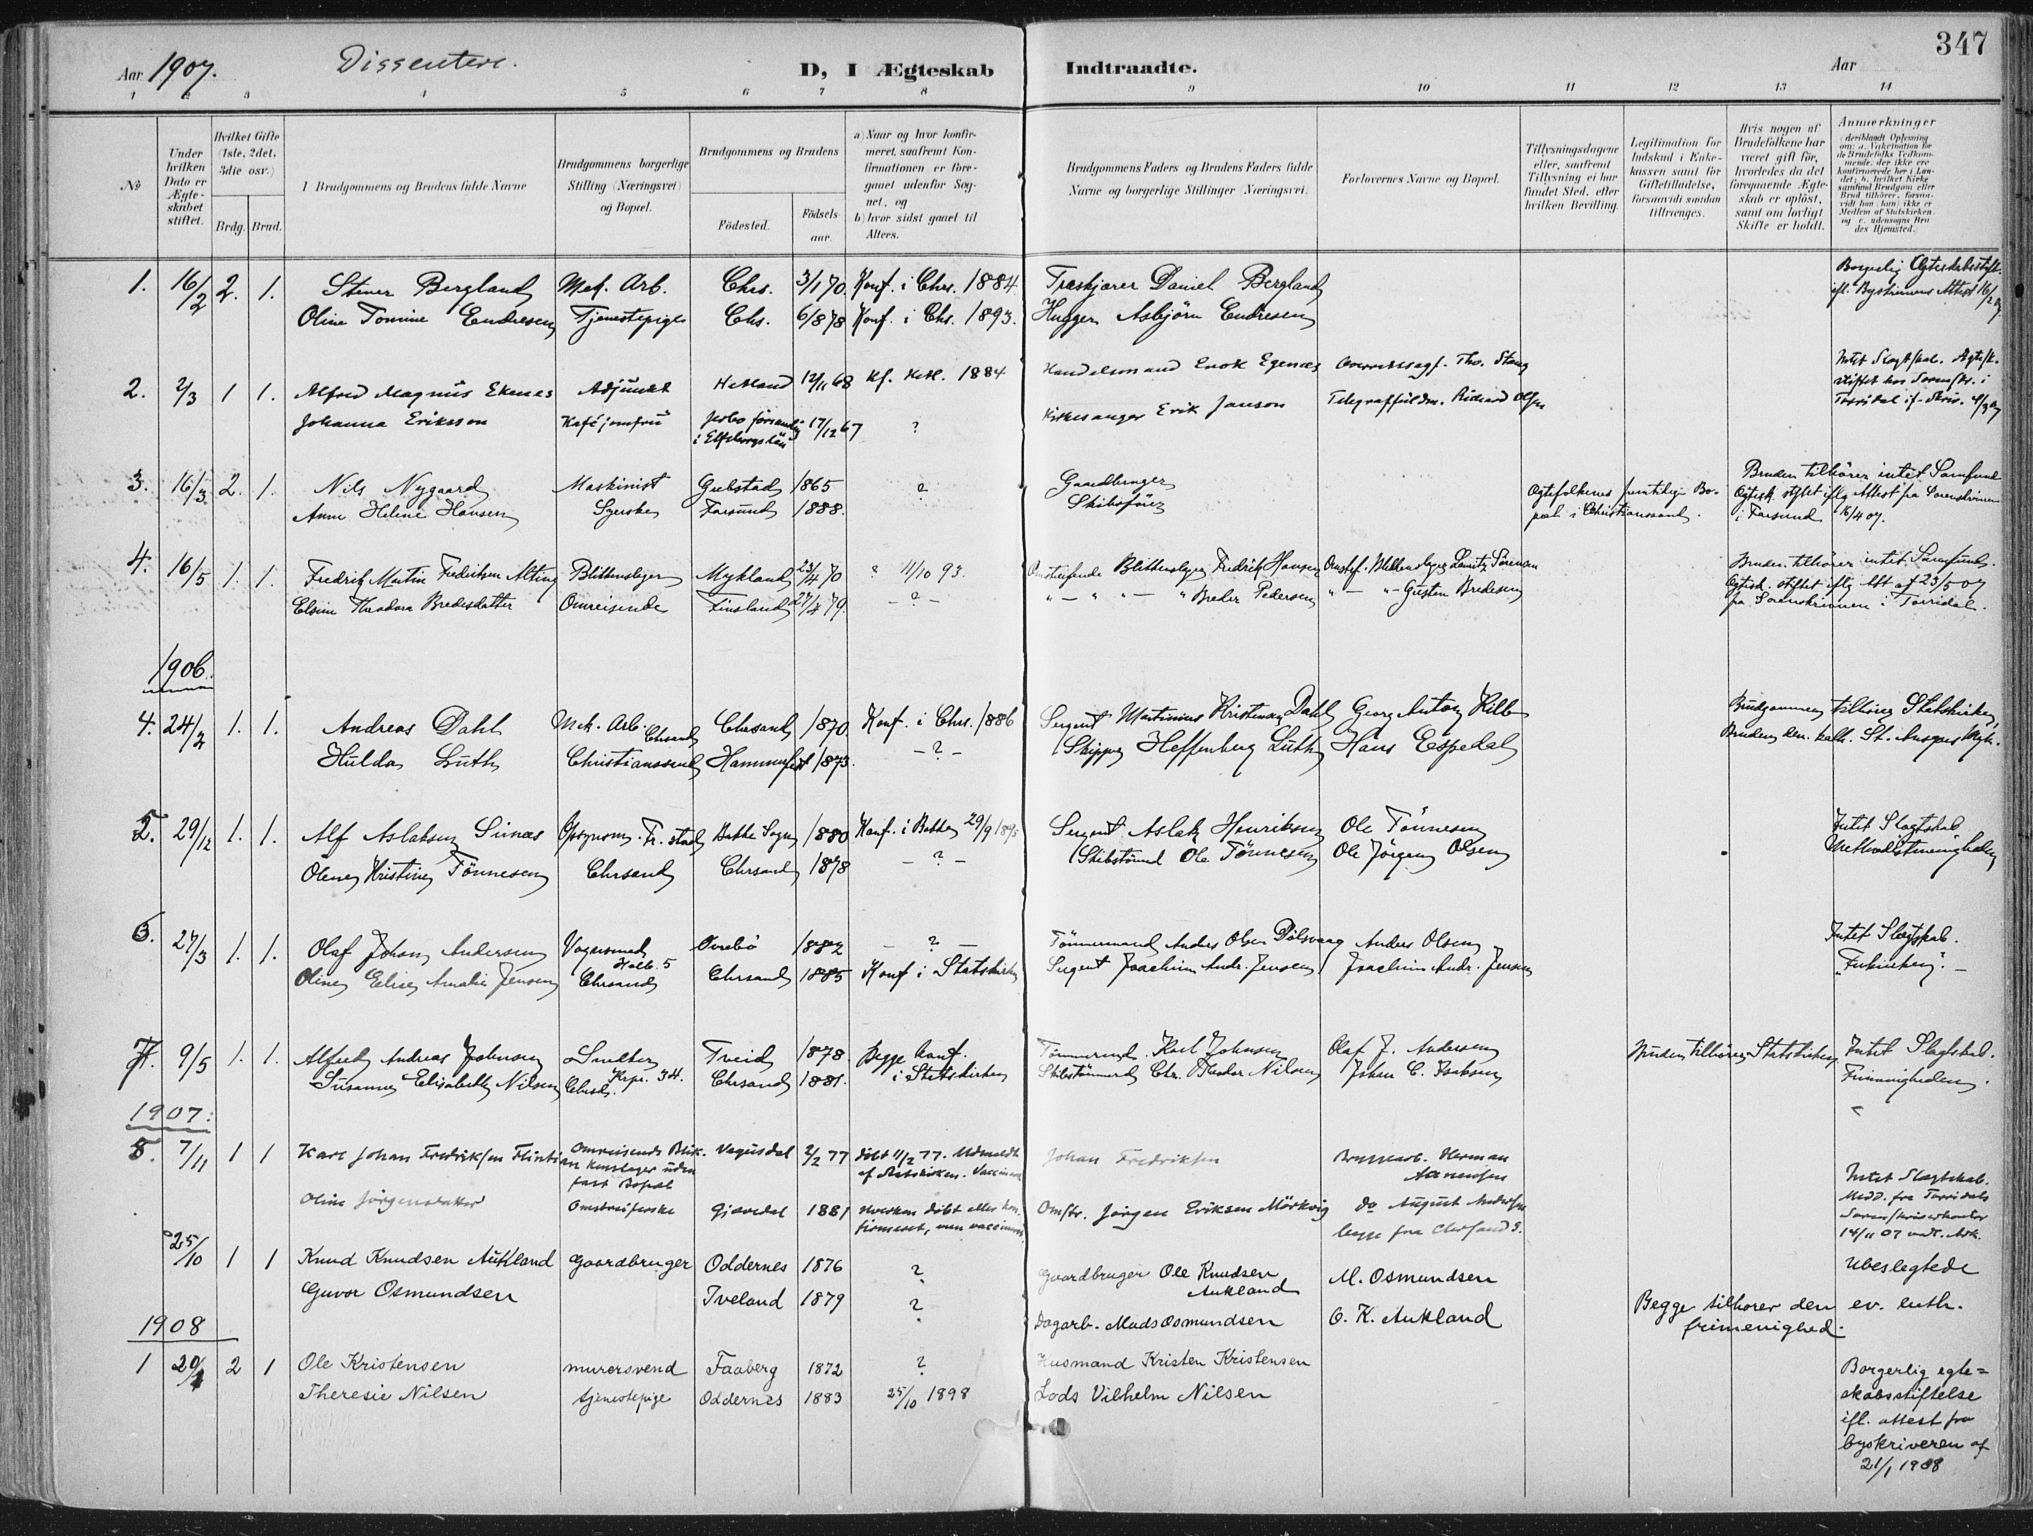 347
Aar 1907. Dissentere. D, I Ægteskab Indtraadte. Aar
1 2 3 4 5 6 7 8 9 10 11 12 13 14
No
Under hvilken Dato er Ægteskabet stiftet.
Hvilket Gifte (1ste, 2det, 3die osv.)
Brdg. Brud.
Brudgommens og Brudens fulde Navne
Brudgommens borgerlige Stilling (Næringsvei) og Bopæl.
Brudgommens og Brudens
Födested.
Födselsaar.
a) Naar og hvor konfirmeret, saafremt Konfirmationen er foregaaet udenfor Sognet, og
b) hvor sidst gaaet til Alters.
Brudgommens Faders og Brudens Faders fulde Navne og borgerlige Stillinger (Næringsvei).
Forlovernes Navne og Bopæl.
Tillysningsdagene eller, saafremt Tillysning ei har fundet Sted, efter hvilken Bevilling.
Legitimation for Indskud i Enkekassen samt for Giftetilladelse, forsaavidt saadan tiltrænges.
Hvis nogen af Brudefolkene har været gift før, hvorledes da det foregaaende Ægteskab er oplöst, samt om lovligt Skifte er holdt.
Anmærkninger
1. 16/2 2. 1. Stener Bergland Mek. Arb. Chrs. 3/1 70 Konf. i Chrs. 1884. Træskjærer Daniel Bergland Borgerlig Ægteskabsstift. ifl. Byskriverens Attest 16/2 07
Oline Tomine Endresen Tjenestepige Chs. 6/8 78 Konf. i Chs. 1893. Hugger Asbjörn Endresen
2. 2/3 1 1. Alfred Magnus Ekenes Adjunkt Hetland 12/11 68 Kf. Hetl. 1884 Handelsmand Enok Egenæs Overretssagf. Tho. Stang
Johanna Eriksson Kaféjomfru i Elfsborgs län 17/12 67 ? Kirkesanger Erik Janson Telegraffuldm. Richard Olsen
Intet Slægtskab. Ægtesk. stiftet hos Sorenskr. i Torridal
3. 16/3. 2. 1. Nils Nygaard Maskinist Grebstad 1865 ? Gaardbruger
Anne Helene Hansen Syerske Farsund 1888. Skibsförer
Ægtefolkenes fremtidige Bopæl i Christianssand.
Bruden tilhörer intet Samfund
Ægtesk. stiftet iflg. Attest fra Sorenskriveren
i Farsund 16/4 07.
4. 16/5 1. 1. Fredrik Martin Fredriksen Alting Blikkenslager Mykland 23/4 70 ? 11/10 93. Omstreifende Blikkenslager Fredrik Hansen Omstrf. Blikkenslager Lauritz Sörensen
Elsine Theodora Bredesdatter Omreisende Finsland 79. – ? – " – " " – " Breder Pedersen " – " – Gustin Bredesen
Bruden tilhörer intet Samfund.
Ægtesk. stiftet iflg. Att. af 23/5 07
fra Sorenskriveren i Torridal.
1906.
4. 24/2 1. 1. Andreas Dahl Mek. Arb. Chrsand Chrsand 1870. Konf. i Chrs. 1886 Sergent Martinius Kristensen Dahl Georg Anton
Hulda Luth Christianssand Hammerfest 1873. – ? – Skipper Heffenberg Luth Hans Espedal
Brudgommen tilhörer Statskirken,
Bruden den kath. St. Ansgars
5. 29/12 1. 1. Alf Aslaksen Sirnæs Opsynsm. Fr. stad Bakke Sogn 1880 Konf. i Bakke 29/9 1895 Sergent Aslak Henriksen Ole Tönnesen Intet Slægtskab.
Olene Kristine Tönnesen Chrsand Chrsand 1878 – ? – Skibstömmerm. Ole Tönnesen Ole Jörgen Olsen Methodistmenigheden
6. 27/3 1. 1. Olaf Johan Andersen Vognsmed Holb. 5 Övrebö 1882 – ? – Tömmermand Anders Olsen Anders Olsen Intet Slægtskab.
Oline Elise Amalie Jensen Chrsand Chrsand 1885 Konf. i Statskirken Sergent Joachim Andr. Jensen Joachim Andr. Jensen "Frikirken". –
7. 9/5 1. 1. Alfred Andreas Johnsen Smelter Tveid 1878. Begge konf. Tömmermd. Karl Johnsen Olaf J. Andersen Bruden tilhörer Statskirken. Intet Slægtskab.
Susanne Elisabeth Nilsen Chrsd. Krpr. 34. Chrsand 1881. i Statskirken Skibstömmerm. Chr. Theodor Nilsen Johan C. Isaksen Frimenigheden.
1907.
8. 7/11 1 1 Karl Johan Fredriksen Flintian Omreisende Blikkenslager uden fast Bopæl Vegusdal 2/2 77 döbt 11/2 77. Udmeldt af Statskirken. Vaccineret Johan Fredriksen Herman Aanensen
Oline Jörgensdatter Omstreiferske Gjövedal 1881 Hverken döbt eller konfirmeret, men vaccineret Omstr. Jörgen Eriksen Mörkvig do August Andersen
begge fra Chrsand S.
Intet Slægtskab. Medd. fra Torridals Sorenskriverkontor 14/11 07
25/10 1 1 Knud Knudsen Aukland Gaardbruger Oddernes 1876 ? Gaardbruger Ole Knudsen Aukland M. Osmundsen Ubeslegtede
Guvor Osmundsen Tveland 1879 ? Dagarb. Mads Osmundsen O. K. Aukland Begge tilhorer den ev. luth. frimenighed.
1908
1 20/1 2 1 Ole Kristensen murersvend Faaberg 1872 ? Husmand Kristen Kristensen
Theresie Nilsen tjenestepige Oddernes 1883 25/10 1898 Lods Vilhelm Nilsen
Borgerlig egteskabsstiftelse
ifl. attest fra
byskriveren af
21/1 1908